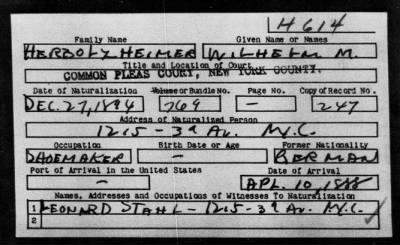 H614
Family Name Given Name or Names
HERBOLZHEIMER WILHELM M.
Title and Location of Court
COMMON PLEAS COURT, NEW YORK COUNTY.
Date of Naturalization Volume or Bundle No. Page No. Copy of Record No.
DEC. 27, 1894 769 — 247
Address of Naturalized Person
1215 - 3d AV. N.Y.C.
Occupation Birth Date or Age Former Nationality
SHOEMAKER — GERMAN
Port of Arrival in the United States Date of Arrival
— APL. 10, 1888
Names, Addresses and Occupations of Witnesses To Naturalization
1 LEONARD STAHL - 1215 - 3d AV. N.Y.C.
2